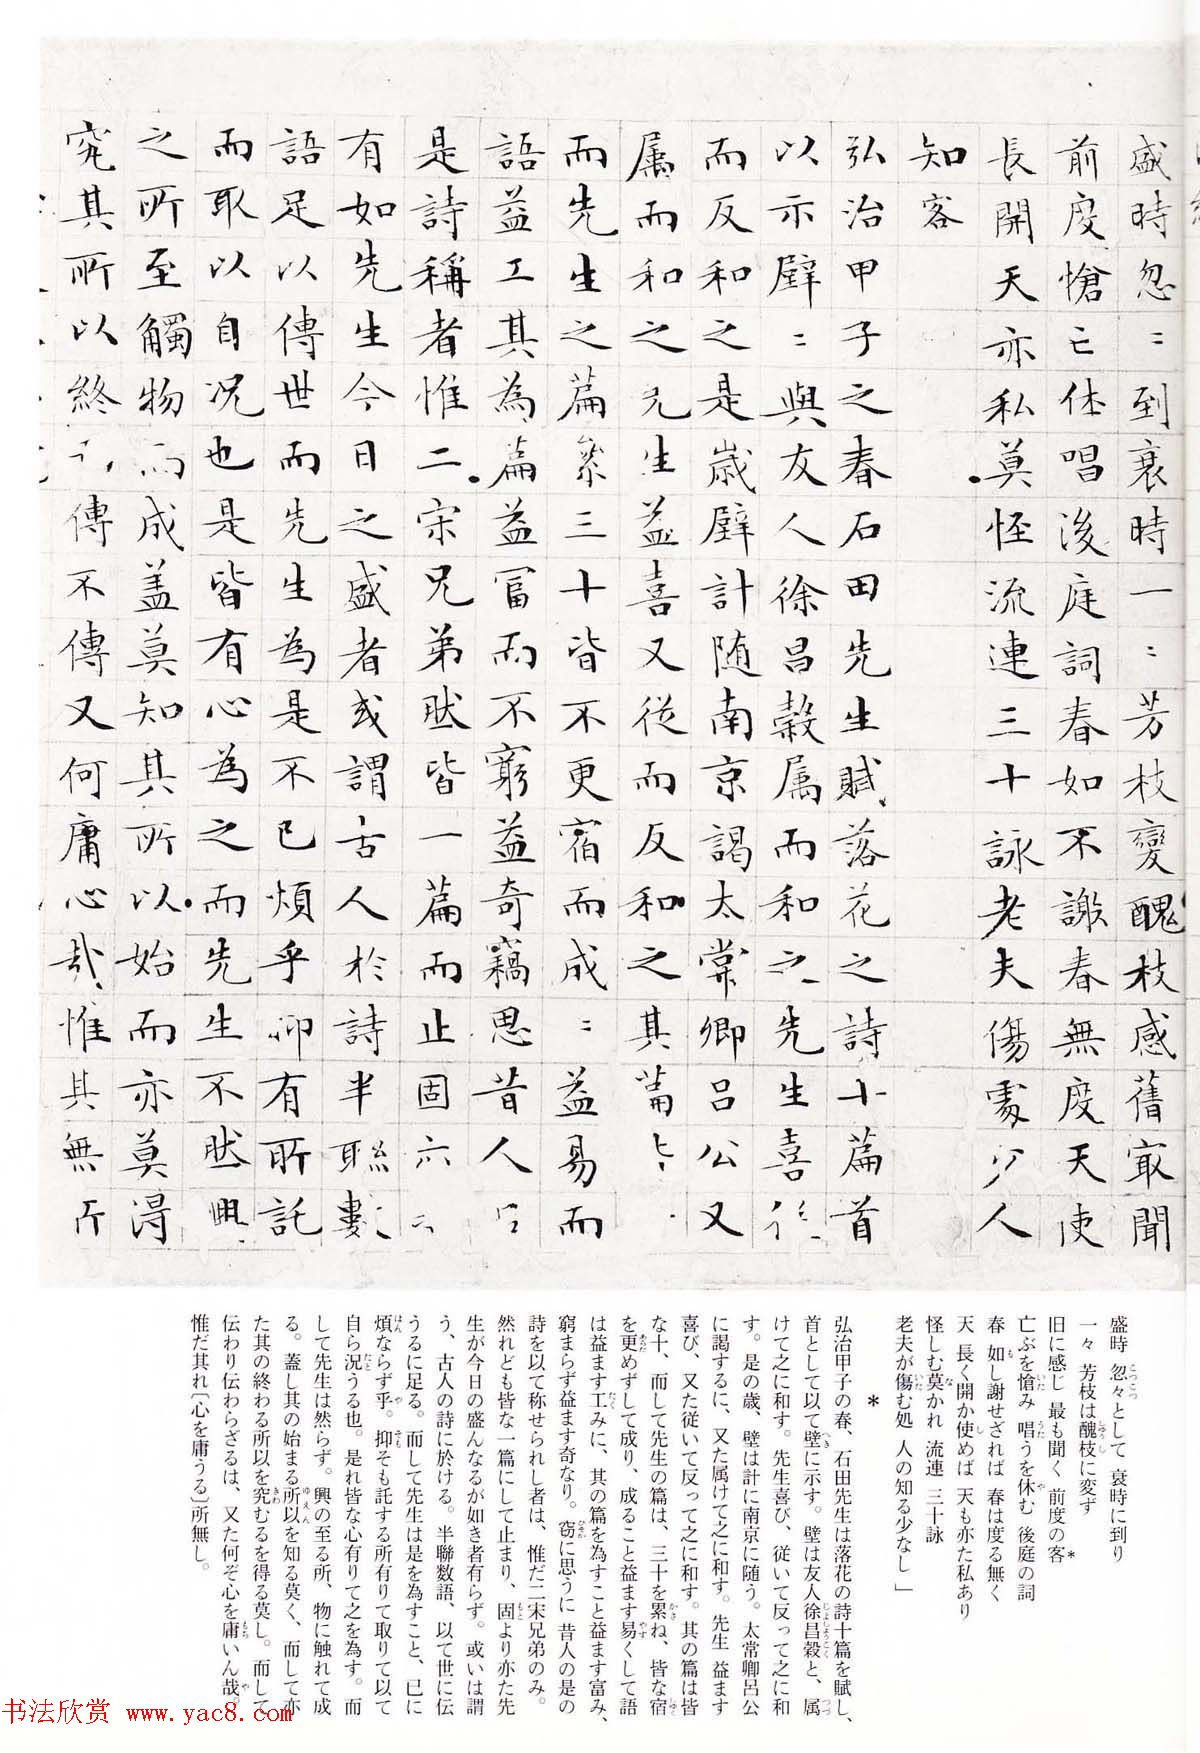 盛時忽〻到衰時一〻芳枝變醜枝感舊冣聞
前度愴亡休唱後庭詞春如不謝春無度天使
長開天亦私莫怪流連三十詠老夫傷處少人
知客
弘治甲子之春石田先生賦落花之詩十篇首
以示璧〻與友人徐昌穀属而和之先生喜從
而反和之是歲璧計随南京謁太常卿吕公又
属而和之先生益喜又從而反和之其篇皆
而先生之篇累三十皆不更宿而成〻益易而
語益工其為篇益富而不窮益奇竊思昔人以
是詩稱者惟二宋兄弟然皆一篇而止固亦
有如先生今日之盛者或謂古人於詩半聯數
語足以傳世而先生為是不已煩乎抑有所託
而取以自况也是皆有心為之而先生不然興
之所至觸物而成盖莫知其所以始而亦莫得
究其所以終而傳不傳又何庸心哉惟其無所
盛時 忽々として 衰時に到り
一々 芳枝は醜枝に変ず
旧に感じ 最も聞く 前度の客*
亡ぶを愴み 唱うを休む 後庭の詞
春 如し謝せざれば 春は度る無く
天 長く開か使めば 天も亦た私あり
怪しむ莫かれ 流連 三十詠
老夫が傷む処 人の知る少なし」
*
弘治甲子の春、石田先生は落花の詩十篇を賦し、
首として以て璧に示す。璧は友人徐昌穀と、属
けて之に和す。先生喜び、従いて反って之に和
す。是の歳、璧は計に南京に随う。太常卿呂公
に謁するに、又た属けて之に和す。先生 益ます
喜び、又た従いて反って之に和す。其の篇は皆
な十、而して先生の篇は、三十を累ね、皆な宿
を更めずして成り、成ること益ます易くして語
は益ます工みに、其の篇を為すこと益ます富み、
窮まらず益ます奇なり。窃に思うに 昔人の是の
詩を以て称せられし者は、惟だ二宋兄弟のみ。
然れども皆な一篇にして止まり、固より亦た先
生が今日の盛んなるが如き者有らず。或いは謂
う、古人の詩に於ける。半聯数語、以て世に伝
うるに足る。而して先生は是を為すこと、已に
煩ならず乎。抑そも託する所有りて取りて以て
自ら況うる也。是れ皆な心有りて之を為す。而
して先生は然らず。興の至る所、物に触れて成
る。蓋し其の始まる所以を知る莫く、而して亦
た其の終わる所以を究むるを得る莫し。而して
伝わり伝わらざるは、又た何ぞ心を庸いん哉。
惟だ其れ〔心を庸うる〕所無し。
书法欣赏 www.yac8.com